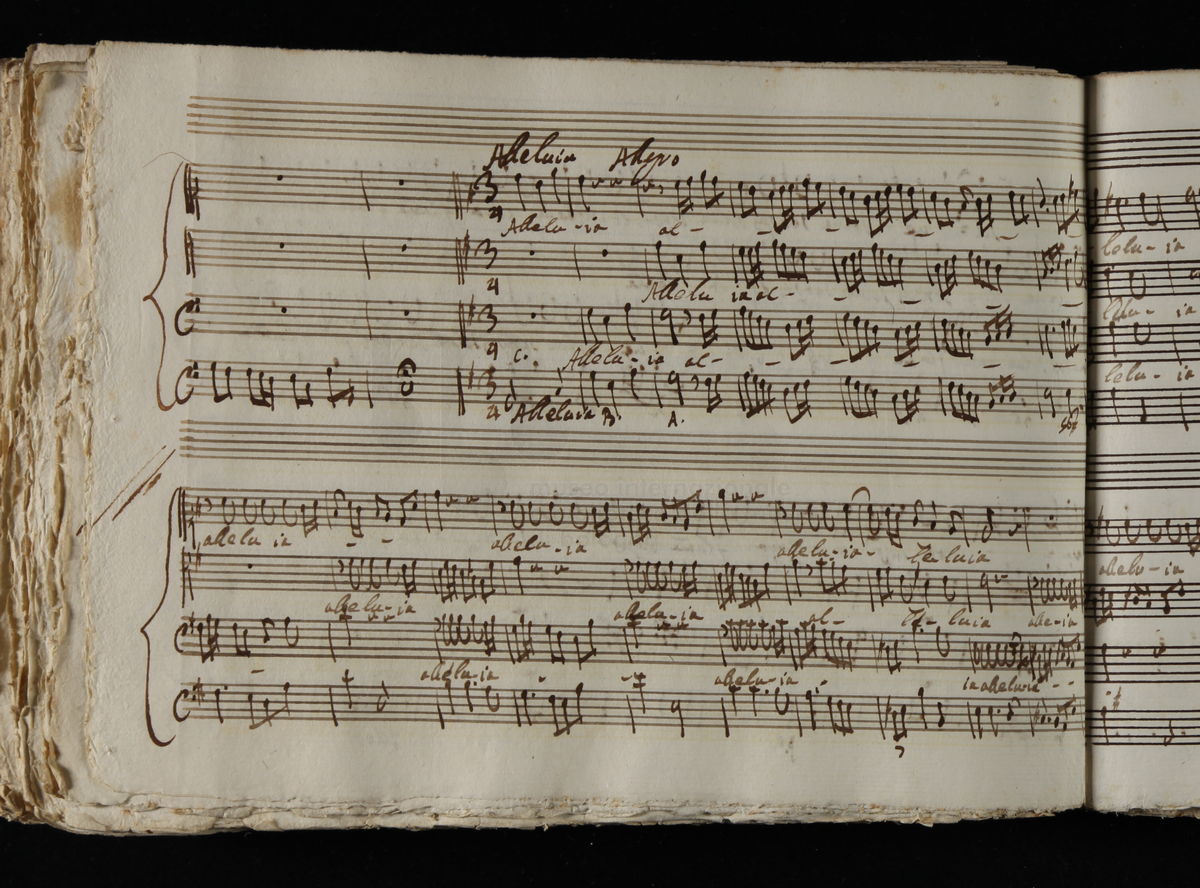 Alleluia Allegro
3
4
Allelu-ia al-
3
4
Allelu ia al-
3
4
C.
Allelu-ia al-
3
4
Alleluia B. A.
museo internazionale
allelu ia allelu-ia allelu-ia- leluia
allelu-ia allelu-ia al- le-luia alle-ia
allelu-ia allelu-ia ia alleluia
lelu-ia
lelu-ia
lelu-ia
allelu-ia